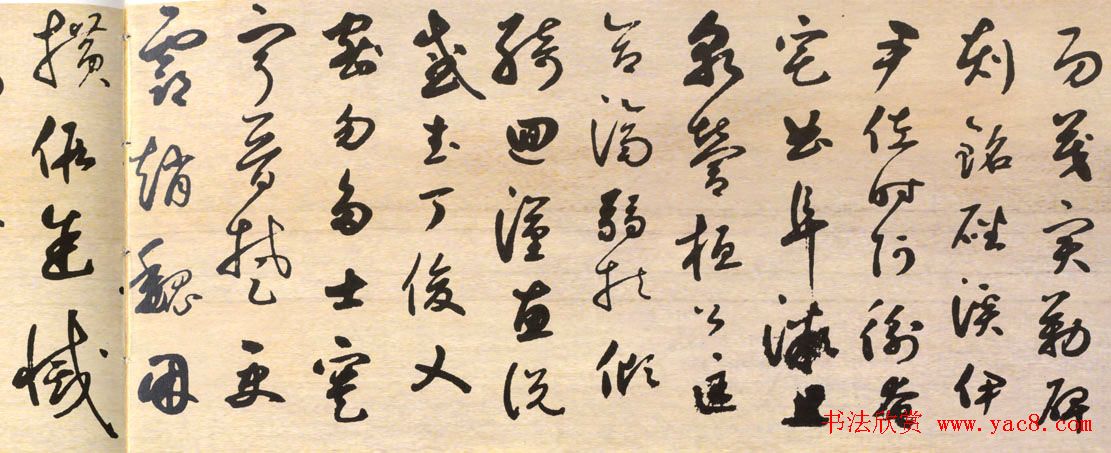 功茂實勒碑
刻銘磻溪伊
尹佐時阿衡奄
宅曲阜微旦
孰營桓公匡
合濟弱扶傾
綺迴漢惠說
感武丁俊乂
密勿多士寔
寧晉楚更
霸趙魏困
橫假途滅
书法欣赏 www.yac8.com